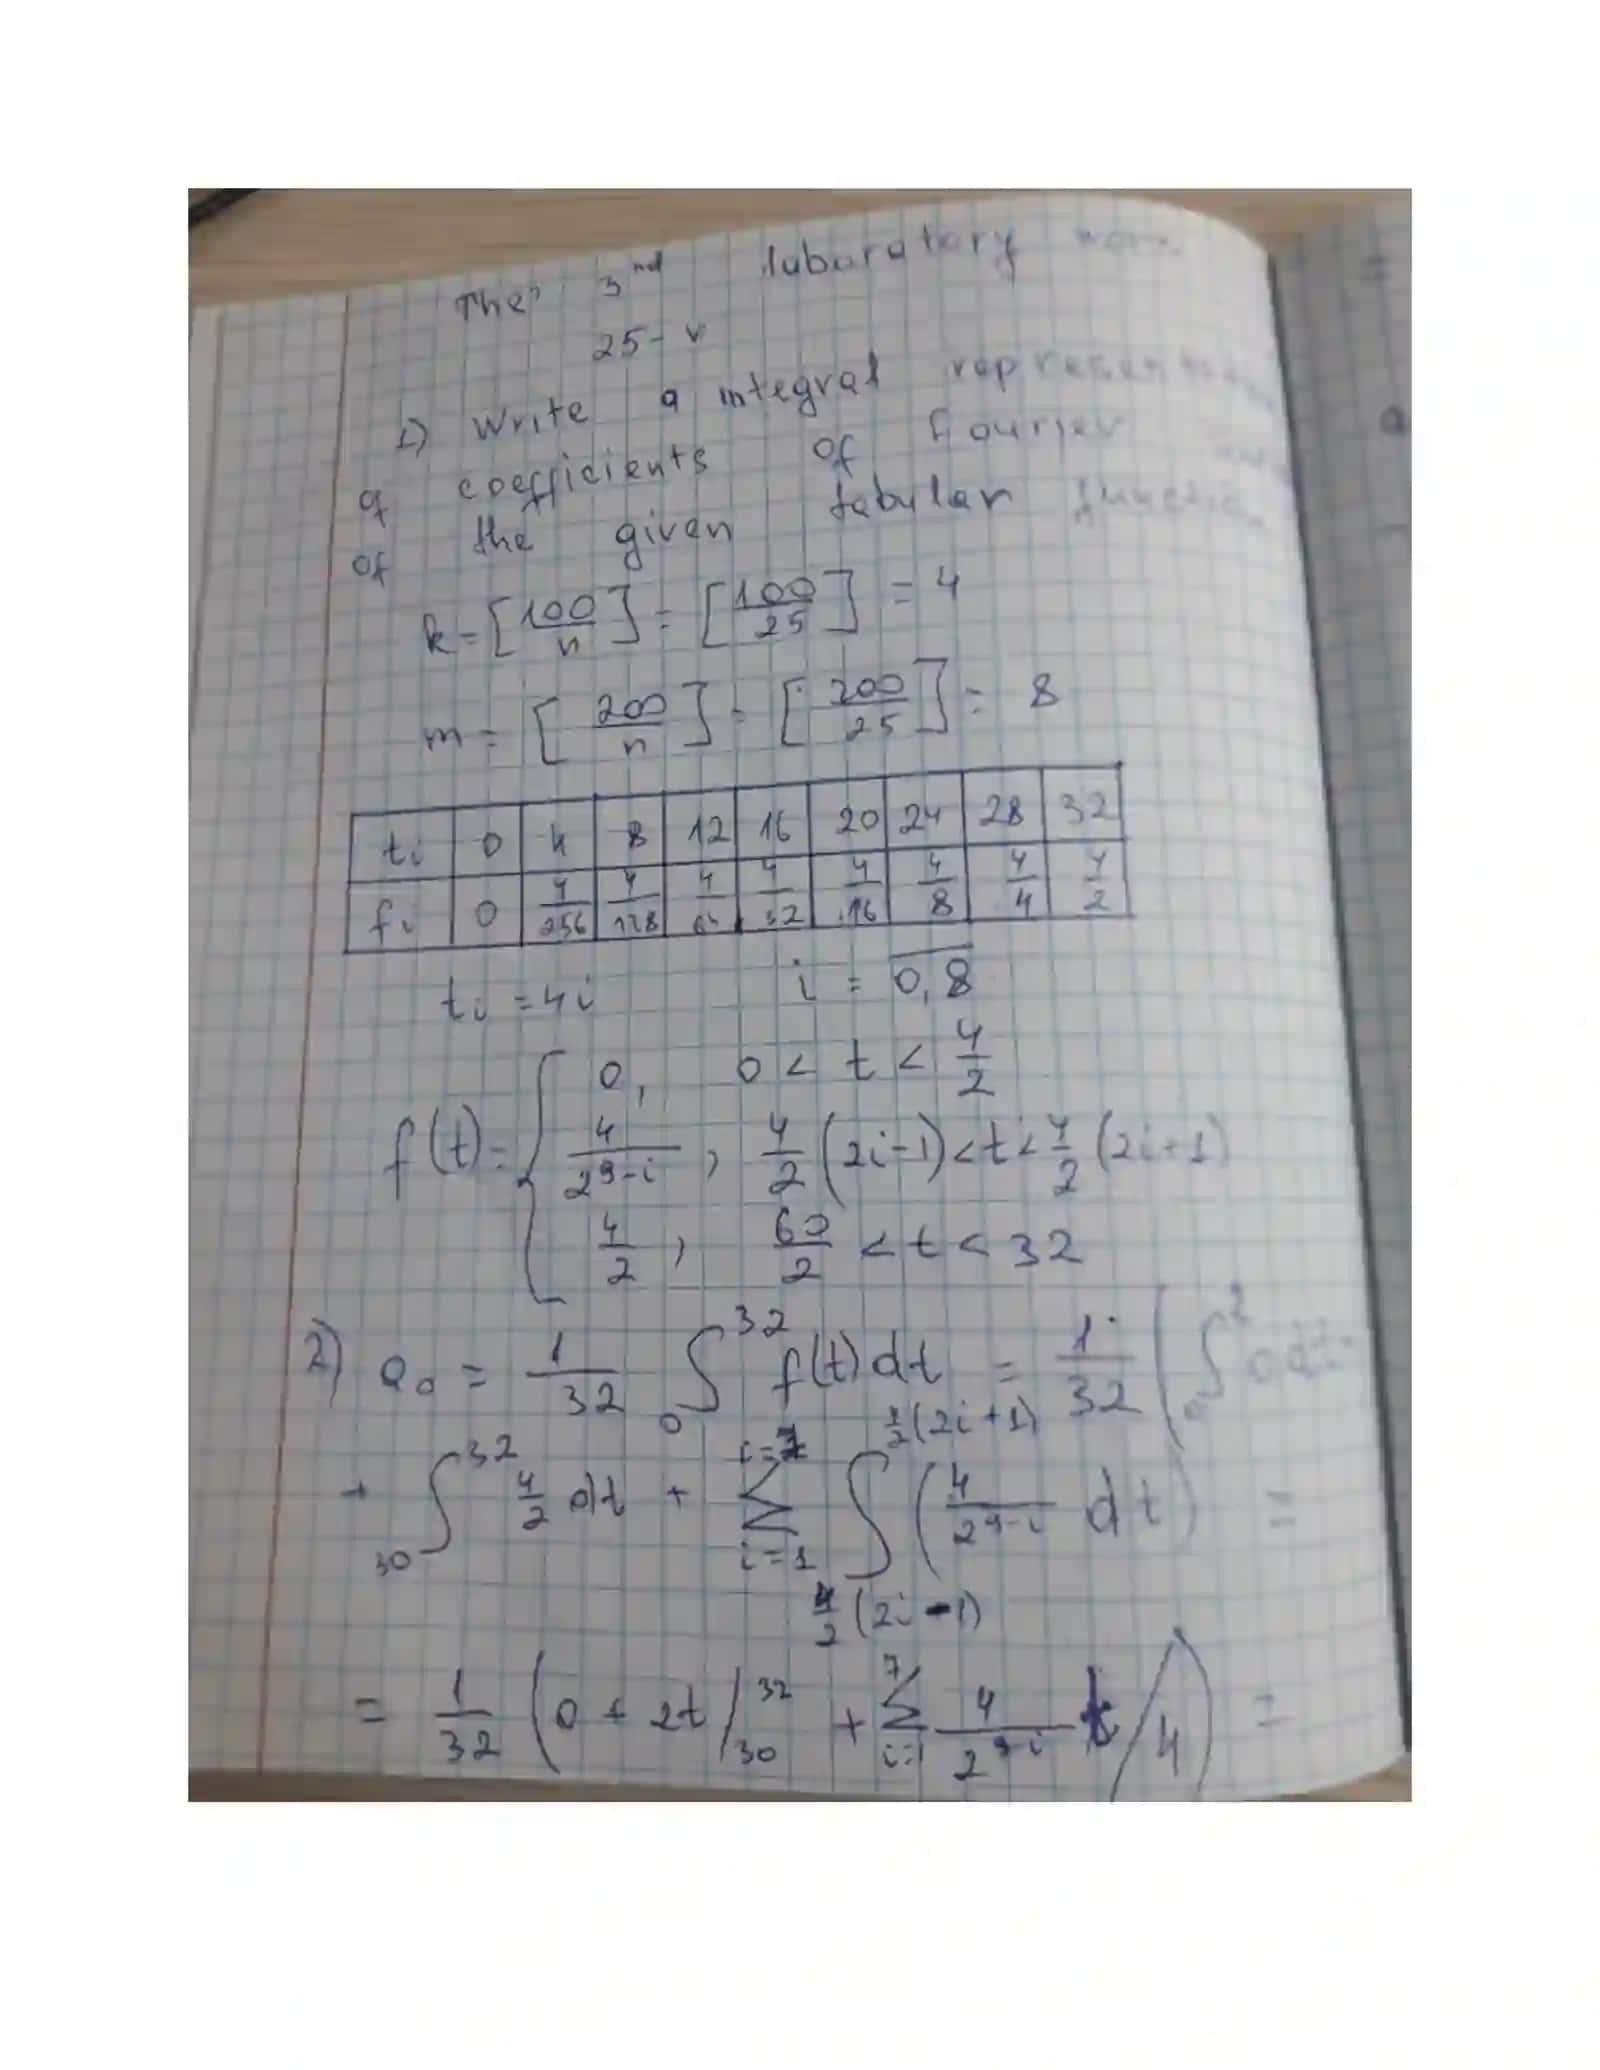 The 3nd laburatory work
25-v
1) Write a integral represent
of coefficients of Fourier
of the given tabular function
k = [100/n] = [100/25] = 4
m = [200/n] = [200/25] = 8
ti 0 4 8 12 16 20 24 28 32
fi 0 4/256 4/128 4/64 4/32 4/16 4/8 4/4 4/2
ti = 4i i = 0,8
f(t) = { 0, 0 < t < 4/2
4/2^(9-i), 4/2 (2i-1) < t < 4/2 (2i+1)
4/2, 60/2 < t < 32
2) a0 = 1/32 ∫_0^32 f(t) dt = 1/32 ( ∫_0^2 0 dt
+ ∫_30^32 4/2 dt + ∑_{i=1}^{i=7} ∫_{4/2 (2i-1)}^{4/2 (2i+1)} ( 4/2^(9-i) dt ) =
= 1/32 ( 0 + 2t |_30^32 + ∑_{i=1}^7 4/2^(9-i) t / 4 ) =